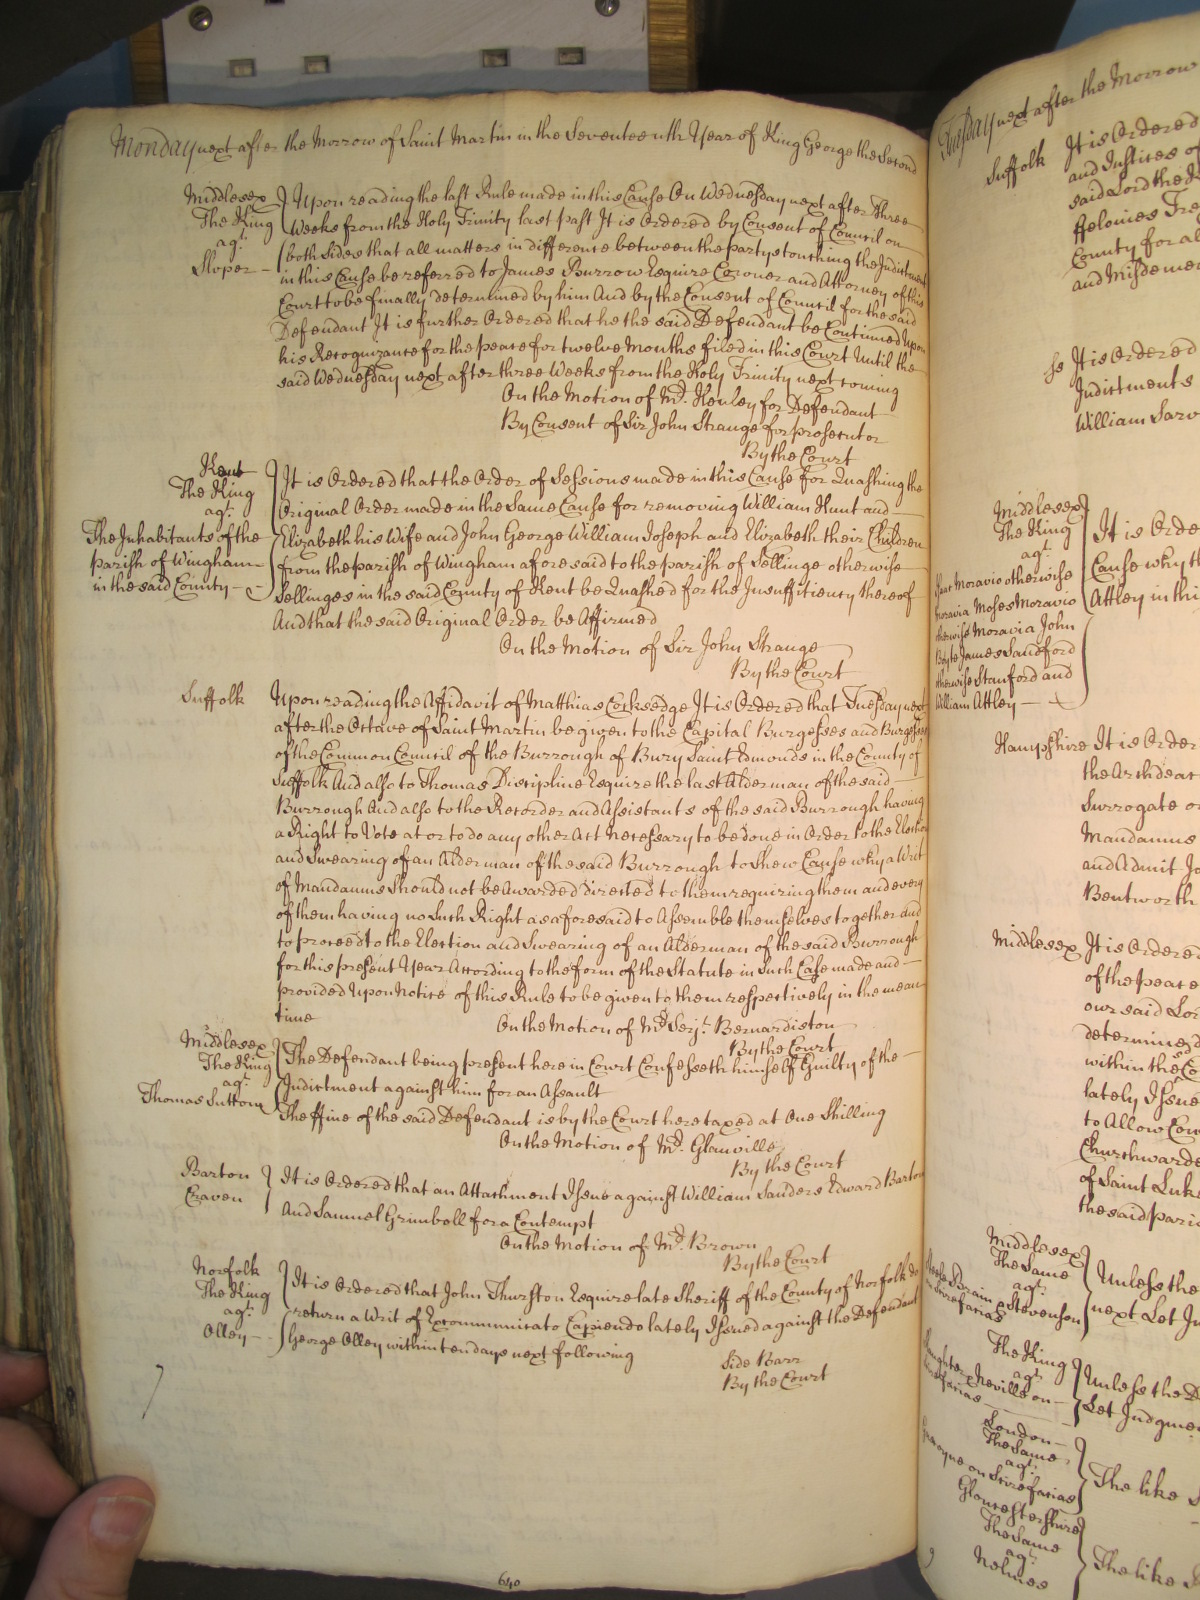 Monday next after the Morrow of Saint Martin in the Seventeenth Year of King George the Second
Middlesex
The King
agt.
Sloper
Upon reading the last Rule made in this Cause On Wednesday next after Three
Weeks from the Holy Trinity last past It is Ordered by Consent of Council on
both sides that all matters in difference between the partys touching the Indictment
in this Cause be referred to James Burrow Esquire Coroner and Attorney of this
Court to be finally determined by him And by the Consent of Council for the said
Defendant It is further Ordered that he the said Defendant be Continued upon
his Recognizance for the peace for twelve Months filed in this Court Until the
said Wednesday next after three Weeks from the Holy Trinity next coming
On the Motion of Mr. Henley for Defendant
By Consent of Sir John Strange for prosecutor
By the Court
Kent
The King
agt.
The Inhabitants of the
parish of Wingham
in the said County
It is Ordered that the Order of Sessions made in this Cause for Quashing the
Original Order made in the Same Cause for removing William Hunt and
Elizabeth his Wife and John George William Joseph and Elizabeth their Children
from the parish of Wingham aforesaid to the parish of Sellinge otherwise
Sellinges in the said County of Kent be Quashed for the Insufficiency thereof
And that the said Original Order be Affirmed
On the Motion of Sir John Strange
By the Court
Suffolk
Upon reading the Affidavit of Matthias Corksedge It is Ordered that Tuesday next
after the Octave of Saint Martin be given to the Capital Burgesses and Burgesses
of the Common Council of the Burrough of Bury Saint Edmonds in the County of
Suffolk And also to Thomas Discipline Esquire the last Alderman of the said
Burrough And also to the Recorder and Assistants of the said Burrough having
a Right to Vote at or to do any other Act necessary to be done in Order to the Election
and Swearing of an Alderman of the said Burrough to Shew Cause why a Writ
of Mandamus Should not be Awarded directed to them requiring them and every
of them having no Such Right as aforesaid to Assemble themselves together and
to proceed to the Election and Swearing of an Alderman of the said Burrough
for this present Year According to the form of the Statute in Such Case made and
provided Upon Notice of this Rule to be given to them respectively in the mean
time
On the Motion of Mr. Serjt. Bernardiston
By the Court
Middlesex
The King
agt.
Thomas Sutton
The Defendant being present here in Court Confesseth himself Guilty of the
Indictment against him for an Assault
The ffine of the said Defendant is by the Court here taxed at One Shilling
On the Motion of Mr. Glanville
By the Court
Barton
Craven
It is Ordered that an Attachment Issue against William Sanders Edward Barton
And Samuel Grimboll for a Contempt
On the Motion of Mr. Brown
By the Court
Norfolk
The King
agt.
Olley
It is Ordered that John Thurston Esquire late Sheriff of the County of Norfolk do
return a Writ of Excommunicato Capiendo lately Issued against the Defendant
George Olley within ten days next following
Side Barr
By the Court
640
Tuesday next after the Morrow
Suffolk
It is Ordered
and Justices of
said Lord the
ffelonies Tre
County for al
and Misdemea
It is Ordered
Indictments
William Sarv
Middlesex
The King
agt.
Moravio otherwise
Moravia Moses Moravio
otherwise Moravia John
James Sandford
otherwise Stanford and
William Attley
It is Orde
Cause why th
Attley in thi
Hampshire
It is Order
the Archdeac
Surrogate o
Mandamus
and Admit Jo
Bentworth
Middlesex
It is Ordered
of the peace
our said Lor
determined
within the Co
lately Issue
to Allow Cou
Churchwarde
of Saint Luke
the said pari
Middlesex
The Same
agt.
Stevenson
Unless the
next Let Ju
The King
agt.
Neville on
Unless the D
Let Judgme
London
The Same
agt.
on Scirefacias
The like
Gloucestershire
The Same
agt.
Nelmes
The like